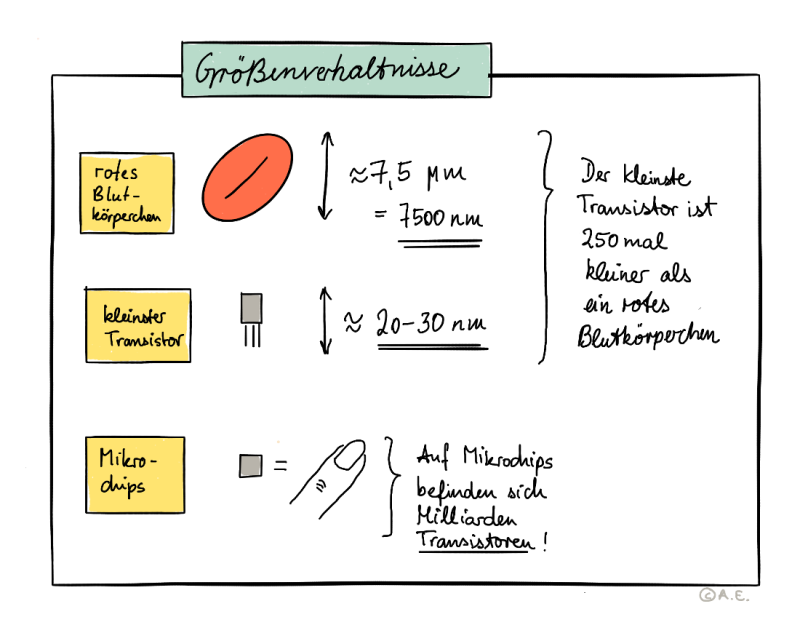 Größenverhältnisse
rotes
Blut-
körperchen
≈7,5 µm
= 7500 nm
Der kleinste
Transistor ist
250 mal
kleiner als
ein rotes
Blutkörperchen
kleinster
Transistor
≈ 20-30 nm
Mikro-
chips
=
Auf Mikrochips
befinden sich
Milliarden
Transistoren!
©A.E.